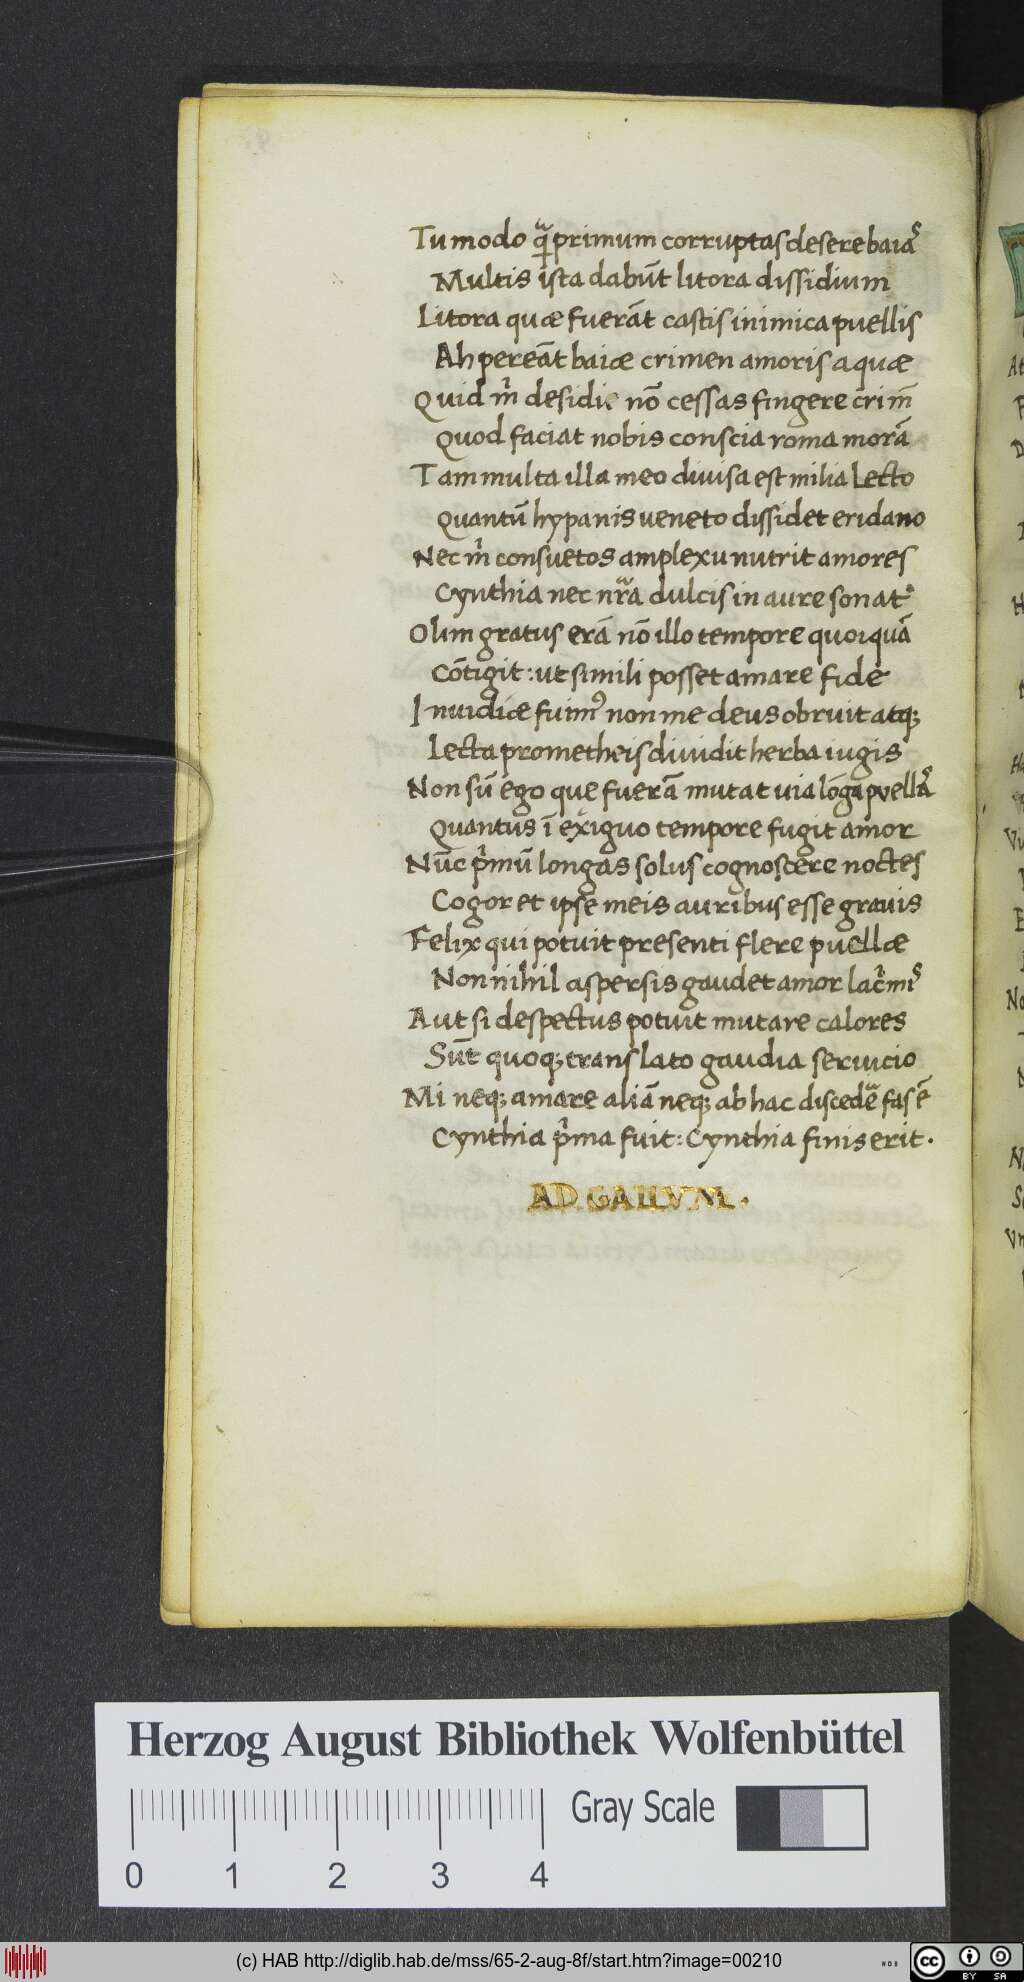 Tu modo q̃primum corruptas desere baias
Multis ista dabūt litora dissidium
Litora quæ fuerāt castis inimica puellis
Ah pereāt baiæ crimen amoris aquæ
Quid m̊ desidie nō cessas fingere crim̄
Quod faciat nobis conscia roma morā
Tam multa illa meo diuisa est milia lecto
Quantū hypanis ueneto dissidet eridano
Nec m̊ consuetos amplexu nutrit amores
Cynthia nec nr̃a dulcis in aure sonat
Olim gratus erā nō illo tempore quoiquā
Cōtigit: ut simili posset amare fide
Inuidiæ fuim᷒ non me deus obruit atq;
Lecta prometheis diuidit herba iugis
Non sū ego que fuerā mutat uia lōga puellas
Quantus ī exiguo tempore fugit amor
Nūc p̊mū longas solus cognoscere noctes
Cogor et ipse meis auribus esse grauis
Felix qui potuit presenti flere puellæ
Non nihil aspersis gaudet amor lac̊mis
Aut si despectus potuit mutare calores
Sūt quoq; translato gaudia seruicio
Mi neq; amare aliā neq; ab hac discedẽ fas ē
Cynthia p̊ma fuit: Cynthia finis erit.
AD. GALLVM.
Herzog August Bibliothek Wolfenbüttel
0 1 2 3 4 Gray Scale
(c) HAB http://diglib.hab.de/mss/65-2-aug-8f/start.htm?image=00210
cc BY SA